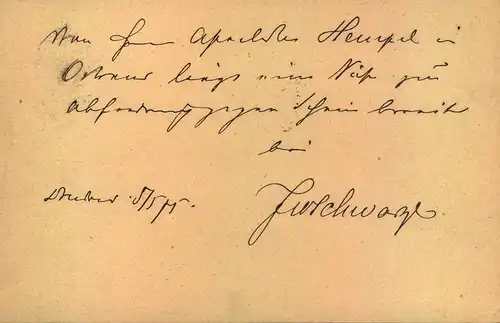 Von Herrn Apotheker Hempel in
Ortrand liegt eine Kiste zur
Abforderung gegen Schein bereit
bei
Dresden 5/5 75. Schwarze